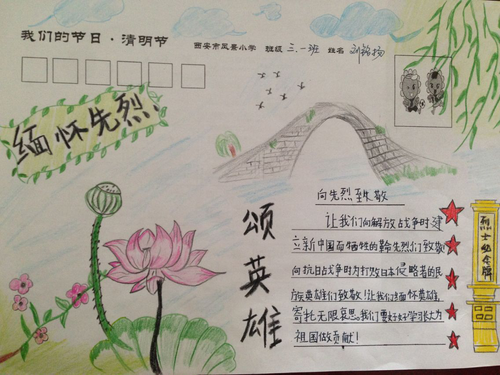 我们的节日·清明节
西安市凤景小学 班级 三.一班 姓名
缅怀先烈
颂英雄
向先烈致敬
让我们向解放战争时建
立新中国而牺牲的革命先烈们致敬!
向抗日战争时为打败日本侵略者的民
族英雄们致敬!让我们缅怀英雄,
寄托无限哀思。我们要好好学习长大为
祖国做贡献!
烈士纪念